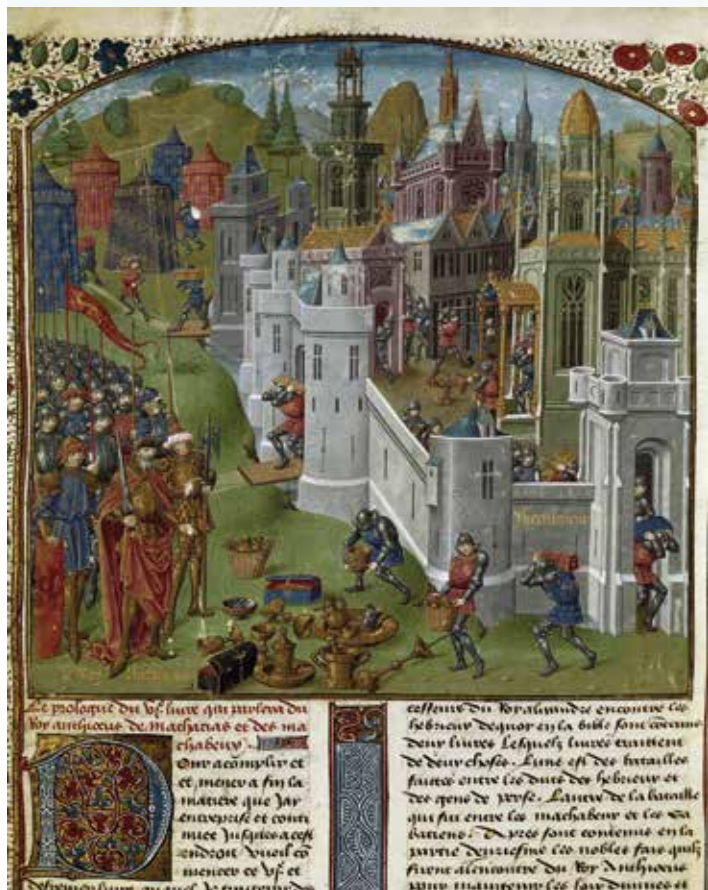 Iherusalem
Le prologue du vᵉ livre qui parlera du
Roy anthiocus de mathatias et des ma
chabeux
Pour acomplir et
et mener a fin la
matiere que Jay
entreprise et conti
nuee Jusques a cest
endroit vueil com
mencer ce vᵉ et
livre ou quel
cesseurs du Roy alixandre encontre les
hebrieux dequoy en la bible sont contenus
deux livres Lesquelz livres traittent
de deux choses. Lune est des batailles
faittes entre les ducs des hebrieux et
des gens de perse. Lautre de la bataille
qui fu entre les machabeux et les
batiens. Apres sont contenus en la
partie deuxiesme les nobles fais quilz
firent alencontre du Roy Anthiocus
pour maintenir les loix divines et